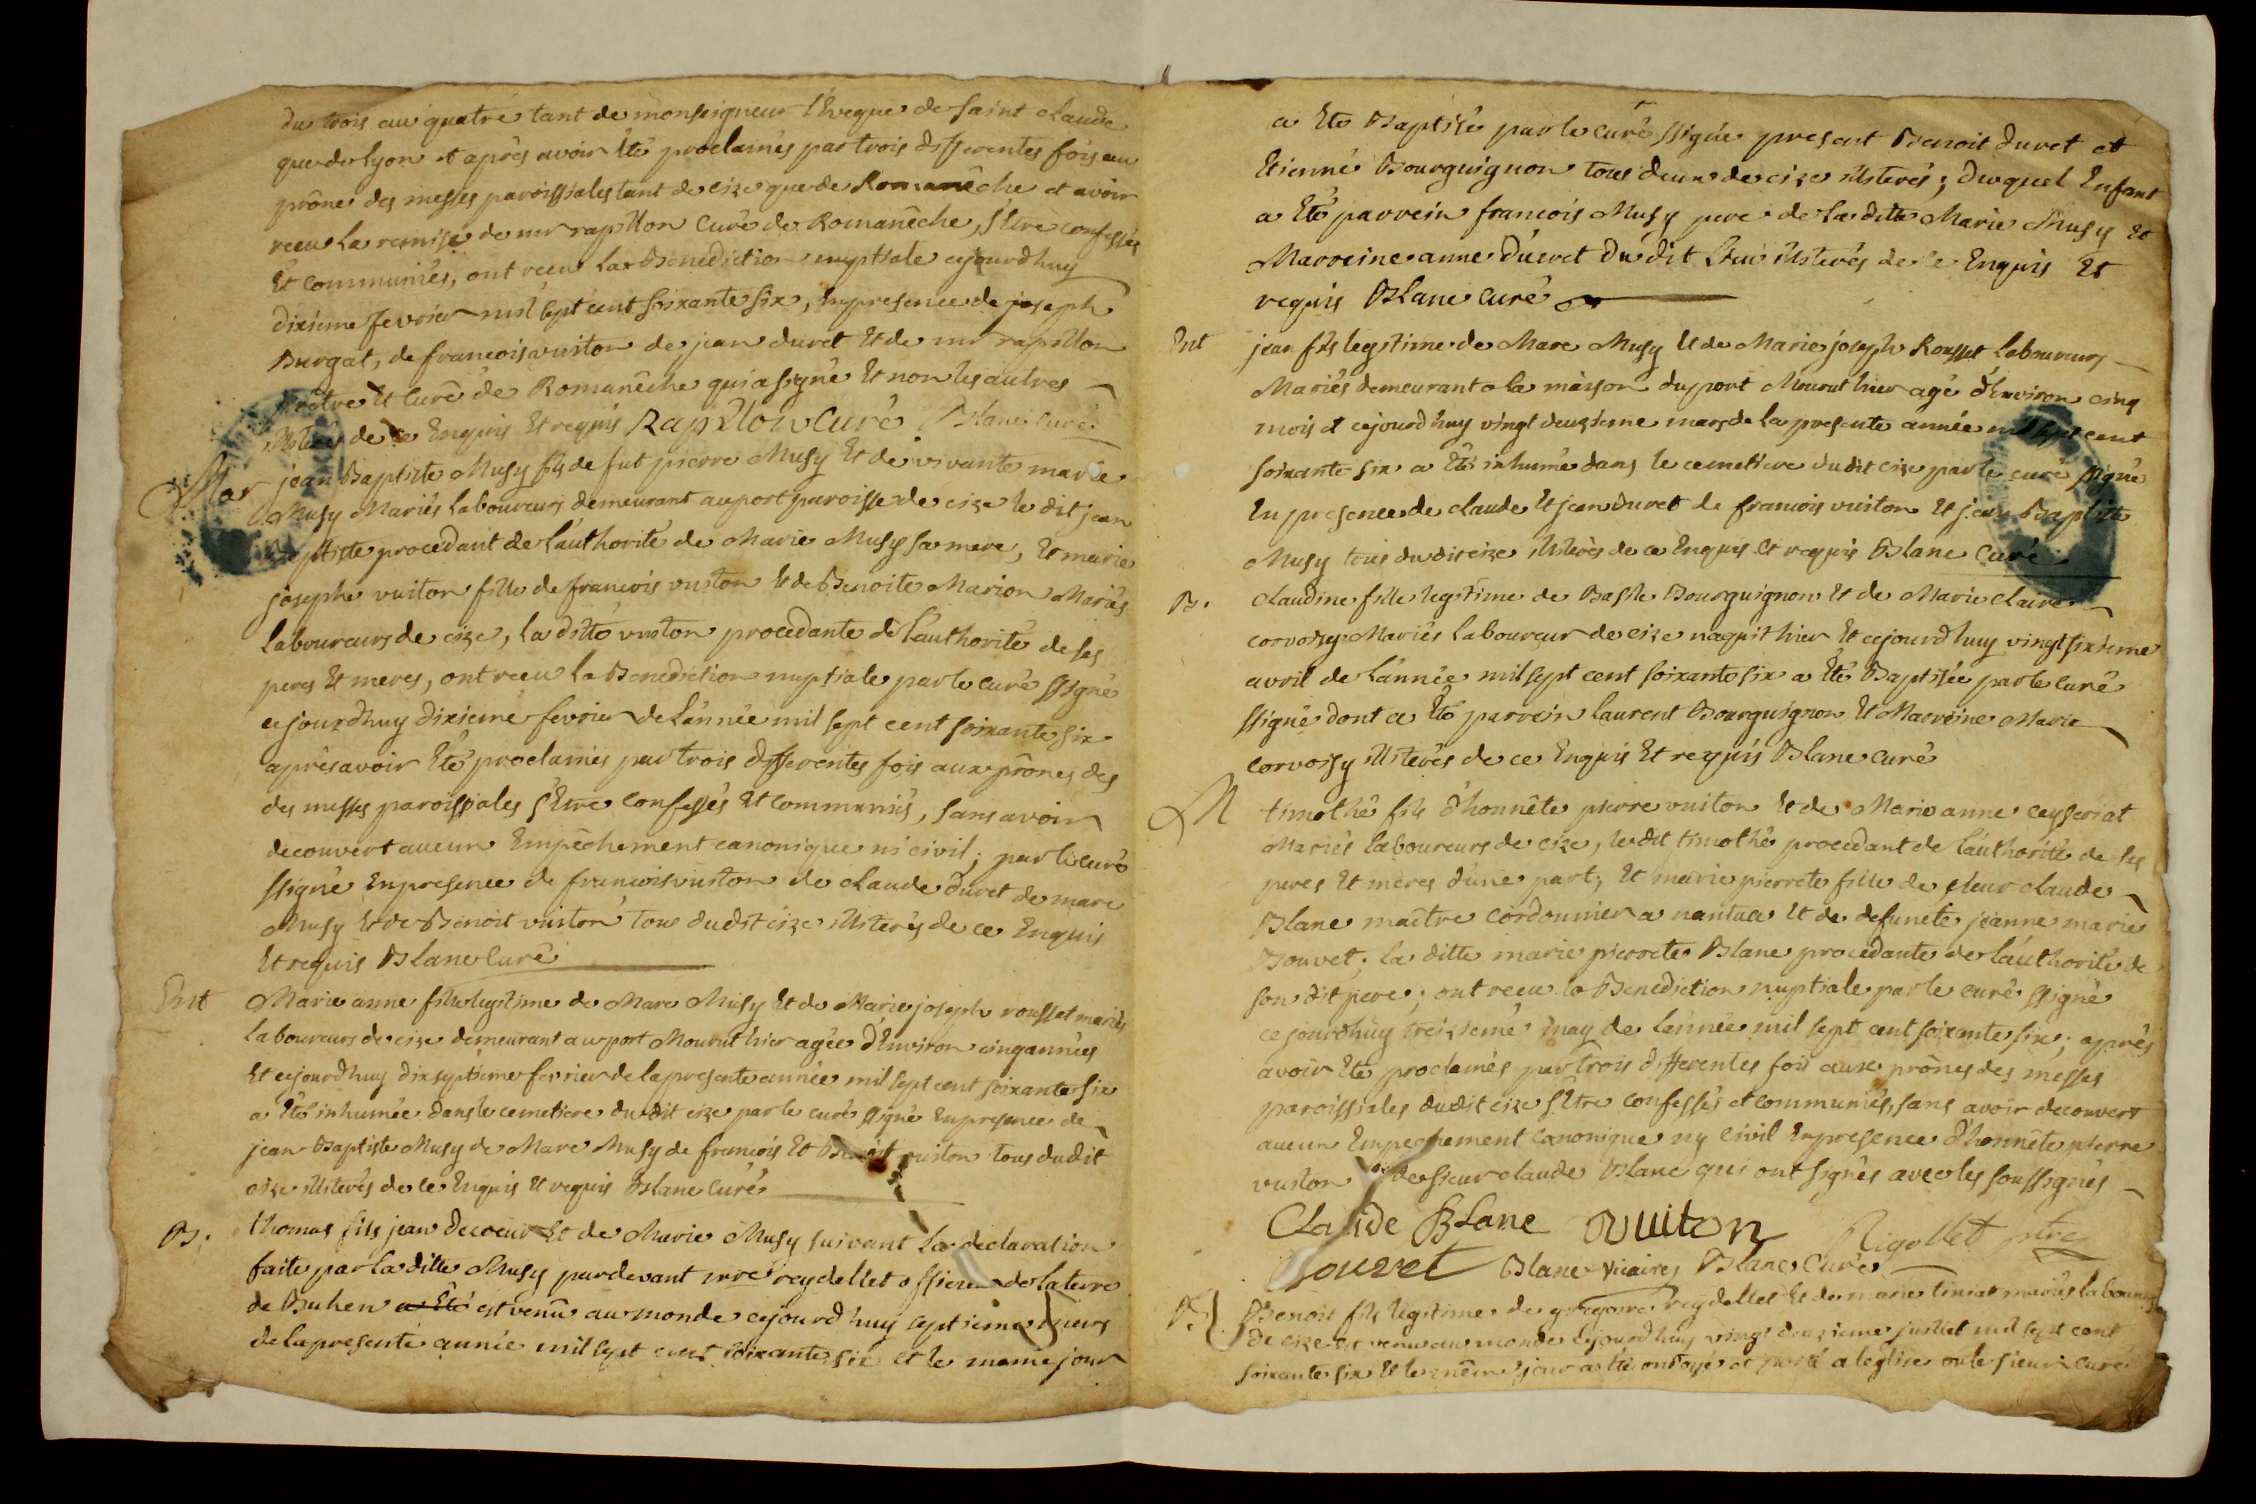 du trois au quatre tant de monseigneur l'Eveque de saint claude
que de lyon et après avoir Eté proclamés par trois differentes fois au
prône des messes paroissiales tant de cize que de Romanêche et avoir
receu la remise de mr rapillon Curé de Romanêche, s'Etre confessés
Et communiés, ont receu la Benediction nuptiale cejourd'huy
dixieme fevrier mil sept cent soixante six, En presence de joseph
Burgat, de francois vuiton de jean duret Et de mr rapillon
prêtre Et Curé de Romanêche qui a signé Et non les autres
illiterés de ce Enquis Et requis Rapillon Curé Blanc Curé
Mar
jean Baptiste Musy fils de fut pierre Musy Et de vivante marie
Musy Mariés laboureurs demeurant au port paroisse de cize le dit jean
Baptiste procedant de l'authorité de Marie Musy sa mere, Et marie
josephe vuiton fille de francois vuiton Et de Benoite Marion Mariés
laboureurs de cize, la ditte vuiton procedante de l'authorité de ses
peres Et meres, ont receu la Benediction nuptiale par le curé ssigné
cejourd'huy dixieme fevrier de l'année mil sept cent soixante six
après avoir Eté proclamés par trois differentes fois aux prônes des
des messes paroissiales s'Etre confessés Et communiés, sans avoir
decouvert aucun Empêchement canonique ni civil; par le curé
ssigné En presence de francois vuiton de claude duret de marc
Musy Et de Benoit vuiton tous dudit cize illiterés de ce Enquis
Et requis Blanc Curé
Ent
Marie anne fille legitime de Marc Musy Et de Marie joseph rousset mariés
laboureurs de cize demeurant au port Mourut hier agée d'Environ cinq années
Et cejourd'huy dix septieme fevrier de la presente année mil sept cent soixante six
a Eté inhumée dans le cemetiere du dit cize par le curé ssigné En presence de
jean Baptiste Musy de Marc Musy de francois Et Benoit vuiton tous dudit
cize illiterés de ce Enquis Et requis Blanc Curé
B.
thomas fils jean decoeur Et de Marie Musy suivant la declaration
faite par la ditte Musy pardevant mre reydellet officier de la terre
de Buhen a Eté est venu au monde cejourd'huy septieme mars
de la presente année mil sept cent soixante six et le meme jour
a Eté Baptisé par le curé ssigné present Benoit duret et
Etienne Bourguignon tous deux de cize illiterés; duquel Enfant
a Eté parrein francois Musy pere de la ditte Marie Musy Et
Marreine anne duret du dit lieu illiterés de ce Enquis Et
requis Blanc curé
Ent
jean fils legitime de Marc Musy Et de Marie joseph Rousset laboureurs
Mariés demeurant a la maison du port Mourut hier agé d'Environ cinq
mois et cejourd'huy vingt deuxieme mars de la presente année mil sept cent
soixante six a Eté inhumé dans le cemetiere dudit cize par le curé ssigné
En presence de claude Et jean duret de francois vuiton Et jean Baptiste
Musy tous du dit cize illiterés de ce Enquis Et requis Blanc Curé
B.
claudine fille legitime de Basile Bourguignon Et de Marie Claire
corvoisy Mariés laboureur de cize naquit hier Et cejourd'huy vingt sixieme
avril de l'année mil sept cent soixante six a Eté Baptisée par le curé
ssigné dont a Eté parrein laurent Bourguignon Et Marreine Marie
corvoisy illiterés de ce Enquis Et requis Blanc curé
M
timothé fils d'honnête pierre vuiton Et de Marie anne ceyseriat
Mariés laboureurs de cize, le dit timothé procedant de l'authorité de ses
peres Et meres d'une part; Et marie pierrete fille de sieur claude
Blanc maître cordonnier a nantua Et de defuncte jeanne marie
Bouvet; la ditte marie pierrete Blanc procedante de l'authorité de
son dit pere; ont receu la Benediction nuptiale par le curé ssigné
cejourd'huy treizieme may de l'année mil sept cent soixante six; après
avoir Eté proclamés par trois differentes fois aux prônes des messes
paroissiales dudit cize s'Etre confessés et communiés, sans avoir decouvert
aucun Empechement canonique ny civil En presence d'honnête pierre
vuiton de sieur claude Blanc qui ont signés avec les soussignés
Claude Blanc Vuiton Rigollet ptre
Bouvet Blanc vicaire Blanc Curé
B.
Benoit fils legitime de gregoire reydellet Et de marie tiniat mariés laboureurs
de cize est venu au monde cejourd'huy vingt deuxieme juillet mil sept cent
soixante six Et le même jour a été ondoyé et porté a l'eglise ou le sieur curé